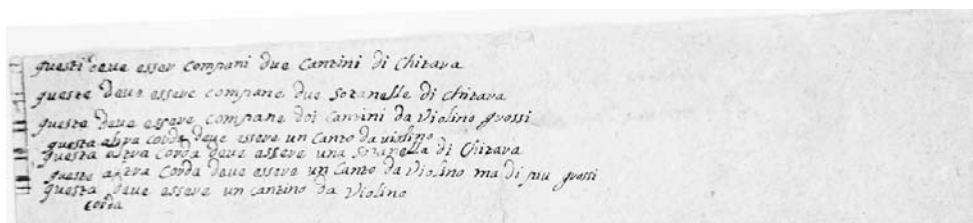 questi deve esser compani due Cantini di Chitara
queste deve essere compane due sotanelle di chitara
queste deve essere compane doi Cantini da Violino grossi
questa altra corda deve essere un Canto da violino
questa altra Corda deve essere una sotanella di Chitara
queste altra Corda deve essere un Canto da Violino ma di piu grossi
questa deve essere un cantino da Violino
corda